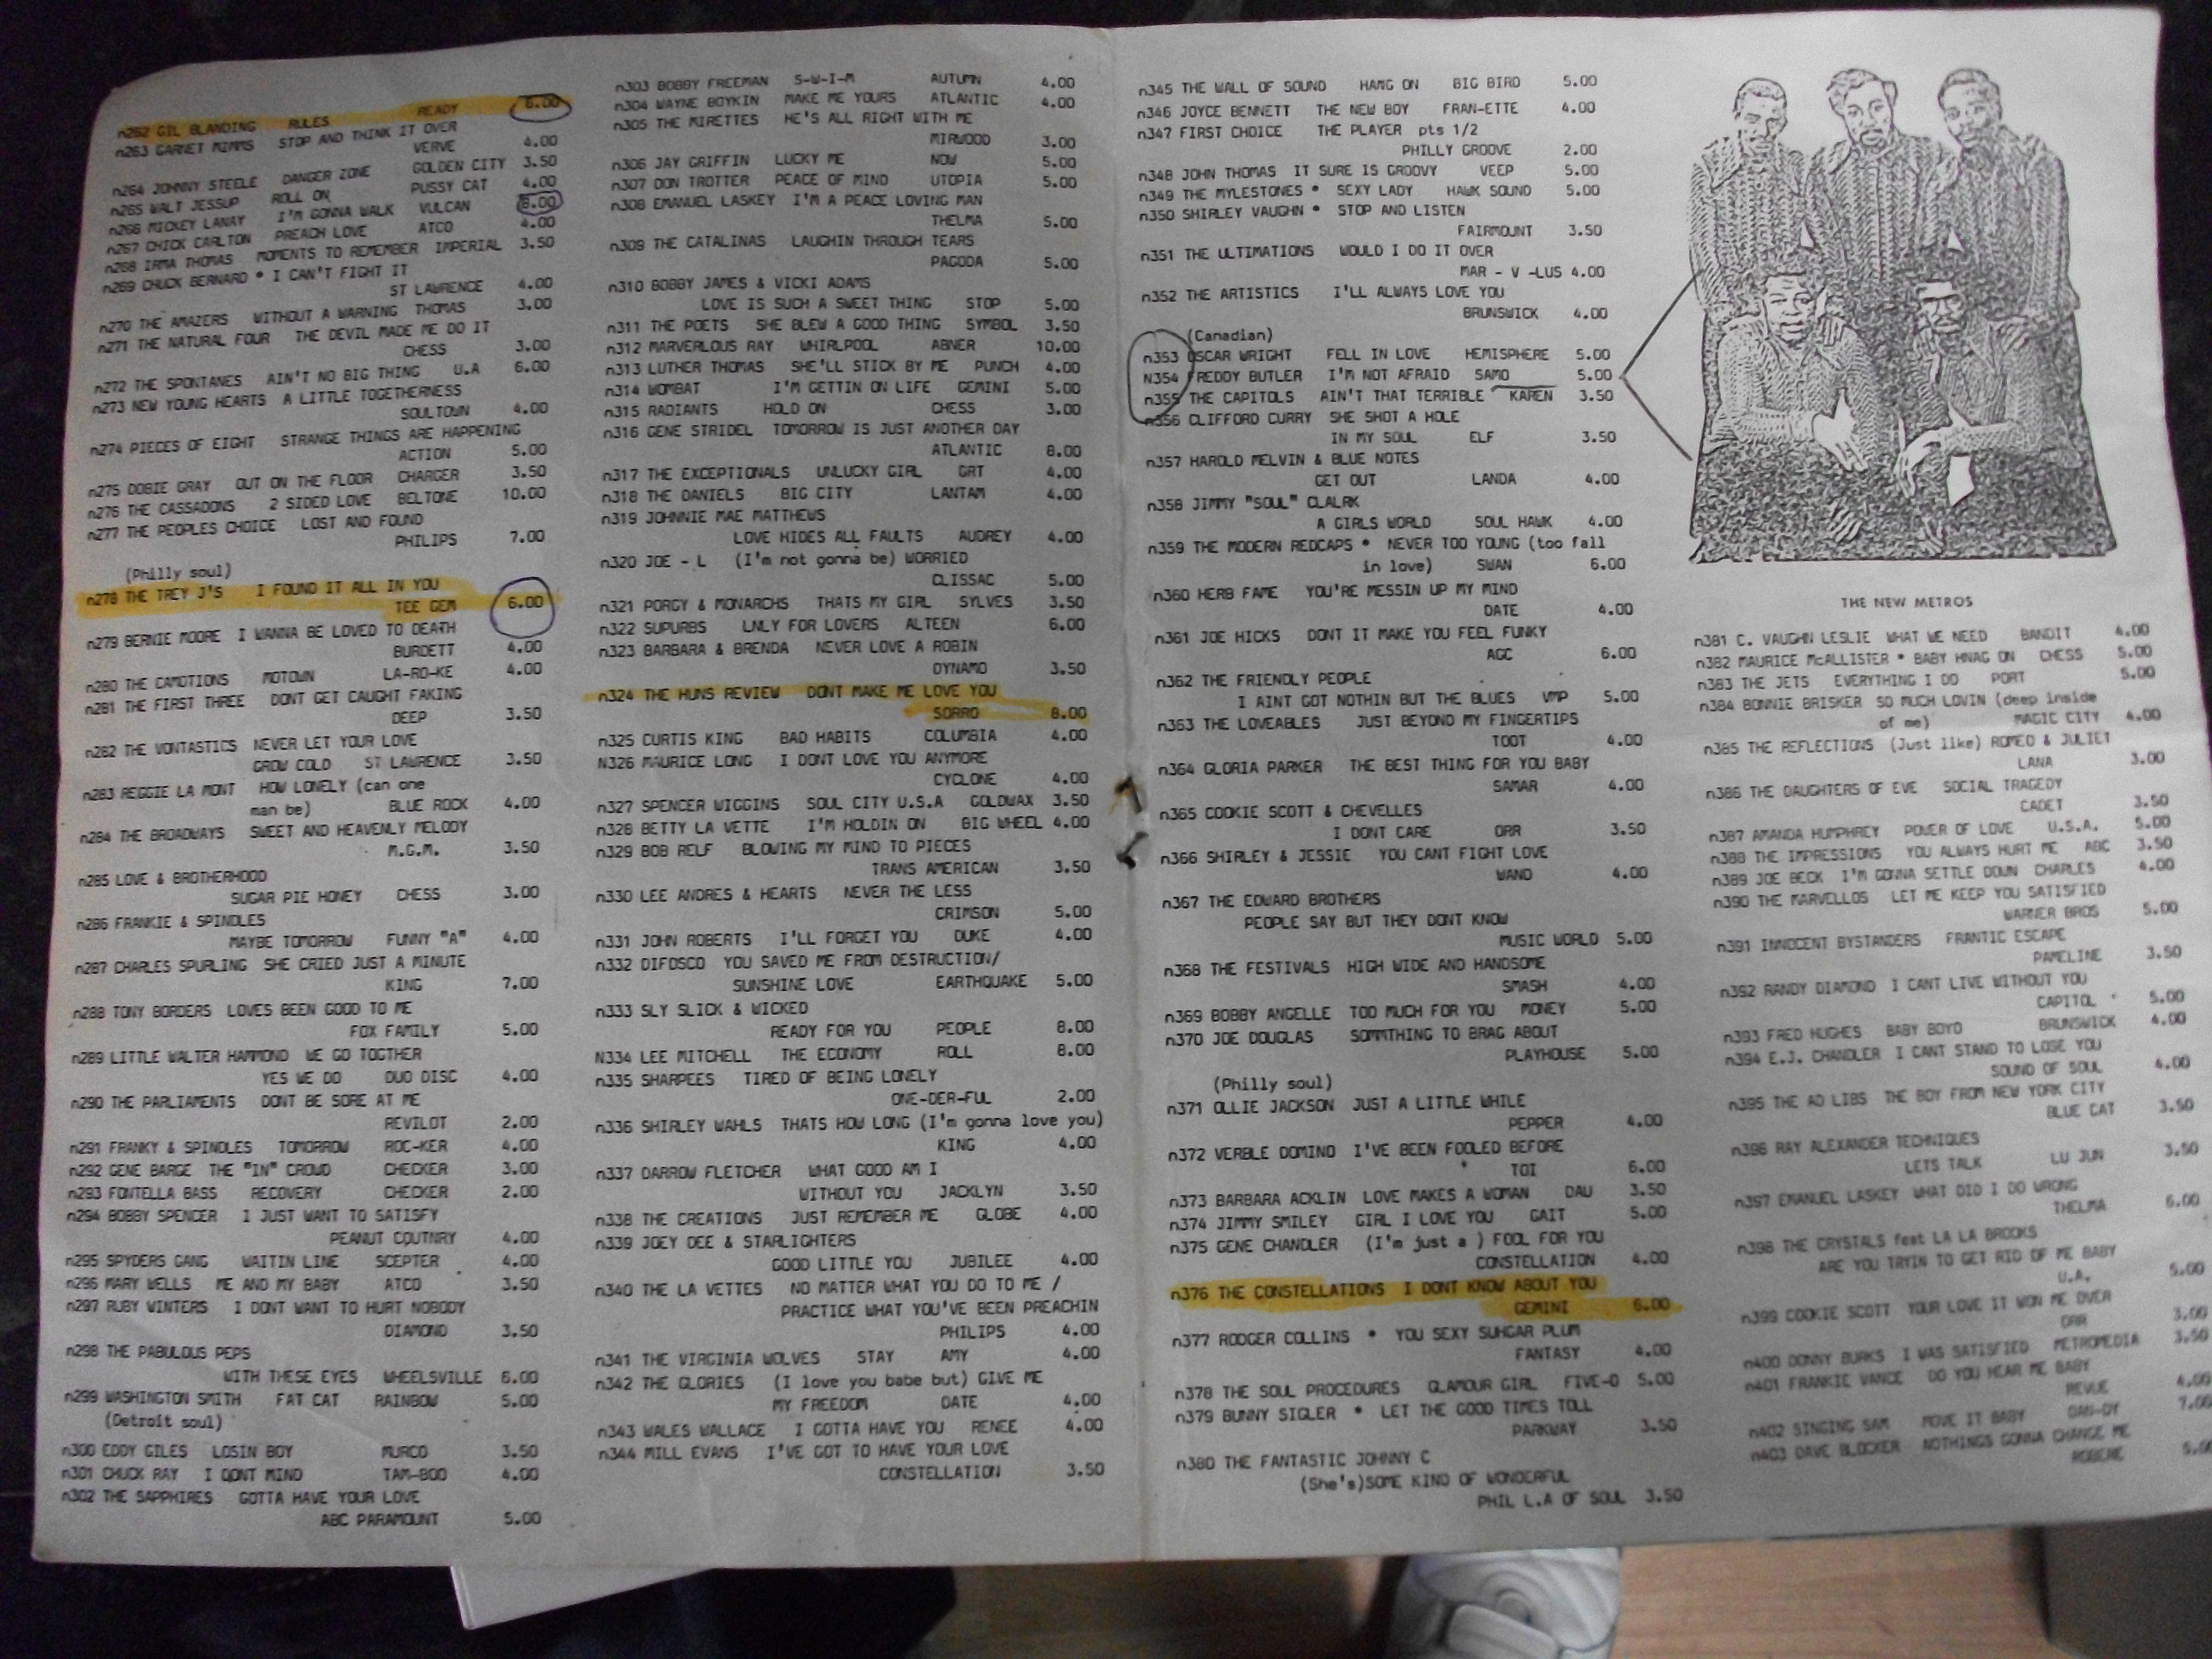 n262 GIL BLANDING RULES READY 6.00
n263 GARNET MIMMS STOP AND THINK IT OVER
VERVE 4.00
n264 JOHNNY STEELE DANGER ZONE GOLDEN CITY 3.50
n265 WALT JESSUP ROLL ON PUSSY CAT 4.00
n266 MICKEY LANAY I'M GONNA WALK VULCAN 8.00
n267 CHICK CARLTON PREACH LOVE ATCO 4.00
n268 IRMA THOMAS MOMENTS TO REMEMBER IMPERIAL 3.50
n269 CHUCK BERNARD * I CAN'T FIGHT IT
ST LAWRENCE 4.00
n270 THE AMAZERS WITHOUT A WARNING THOMAS 3.00
n271 THE NATURAL FOUR THE DEVIL MADE ME DO IT
CHESS 3.00
n272 THE SPONTANES AIN'T NO BIG THING U.A 6.00
n273 NEW YOUNG HEARTS A LITTLE TOGETHERNESS
SOULTOWN 4.00
n274 PIECES OF EIGHT STRANGE THINGS ARE HAPPENING
ACTION 5.00
n275 DOBIE GRAY OUT ON THE FLOOR CHARGER 3.50
n276 THE CASSADONS 2 SIDED LOVE BELTONE 10.00
n277 THE PEOPLES CHOICE LOST AND FOUND
PHILIPS 7.00
(Philly soul)
n278 THE TREY J'S I FOUND IT ALL IN YOU
TEE GEM 6.00
n279 BERNIE MOORE I WANNA BE LOVED TO DEATH
BURDETT 4.00
n280 THE CAMOTIONS MOTOWN LA-RO-KE 4.00
n281 THE FIRST THREE DONT GET CAUGHT FAKING
DEEP 3.50
n282 THE VONTASTICS NEVER LET YOUR LOVE
GROW COLD ST LAWRENCE 3.50
n283 REGGIE LA MONT HOW LONELY (can one
man be) BLUE ROCK 4.00
n284 THE BROADWAYS SWEET AND HEAVENLY MELODY
M.G.M. 3.50
n285 LOVE & BROTHERHOOD
SUGAR PIE HONEY CHESS 3.00
n286 FRANKIE & SPINDLES
MAYBE TOMORROW FUNNY "A" 4.00
n287 CHARLES SPURLING SHE CRIED JUST A MINUTE
KING 7.00
n288 TONY BORDERS LOVES BEEN GOOD TO ME
FOX FAMILY 5.00
n289 LITTLE WALTER HAMMOND WE GO TOGTHER
YES WE DO DUO DISC 4.00
n290 THE PARLIAMENTS DONT BE SORE AT ME
REVILOT 2.00
n291 FRANKY & SPINDLES TOMORROW ROC-KER 4.00
n292 GENE BARGE THE "IN" CROWD CHECKER 3.00
n293 FONTELLA BASS RECOVERY CHECKER 2.00
n294 BOBBY SPENCER I JUST WANT TO SATISFY
PEANUT COUTNRY 4.00
n295 SPYDERS GANG WAITIN LINE SCEPTER 4.00
n296 MARY WELLS ME AND MY BABY ATCO 3.50
n297 RUBY WINTERS I DONT WANT TO HURT NOBODY
DIAMOND 3.50
n298 THE PABULOUS PEPS
WITH THESE EYES WHEELSVILLE 6.00
n299 WASHINGTON SMITH FAT CAT RAINBOW 5.00
(Detroit soul)
n300 EDDY GILES LOSIN BOY MURCO 3.50
n301 CHUCK RAY I DONT MIND TAM-BOO 4.00
n302 THE SAPPHIRES GOTTA HAVE YOUR LOVE
ABC PARAMOUNT 5.00
n303 BOBBY FREEMAN S-W-I-M AUTUMN 4.00
n304 WAYNE BOYKIN MAKE ME YOURS ATLANTIC 4.00
n305 THE MIRETTES HE'S ALL RIGHT WITH ME
MIRWOOD 3.00
n306 JAY GRIFFIN LUCKY ME NOW 5.00
n307 DON TROTTER PEACE OF MIND UTOPIA 5.00
n308 EMANUEL LASKEY I'M A PEACE LOVING MAN
THELMA 5.00
n309 THE CATALINAS LAUGHIN THROUGH TEARS
PAGODA 5.00
n310 BOBBY JAMES & VICKI ADAMS
LOVE IS SUCH A SWEET THING STOP 5.00
n311 THE POETS SHE BLEW A GOOD THING SYMBOL 3.50
n312 MARVERLOUS RAY WHIRLPOOL ABNER 10.00
n313 LUTHER THOMAS SHE'LL STICK BY ME PUNCH 4.00
n314 WOMBAT I'M GETTIN ON LIFE GEMINI 5.00
n315 RADIANTS HOLD ON CHESS 3.00
n316 GENE STRIDEL TOMORROW IS JUST ANOTHER DAY
ATLANTIC 8.00
n317 THE EXCEPTIONALS UNLUCKY GIRL GRT 4.00
n318 THE DANIELS BIG CITY LANTAM 4.00
n319 JOHNNIE MAE MATTHEWS
LOVE HIDES ALL FAULTS AUDREY 4.00
n320 JOE - L (I'm not gonna be) WORRIED
CLISSAC 5.00
n321 PORGY & MONARCHS THATS MY GIRL SYLVES 3.50
n322 SUPURBS LNLY FOR LOVERS ALTEEN 6.00
n323 BARBARA & BRENDA NEVER LOVE A ROBIN
DYNAMO 3.50
n324 THE HUNS REVIEW DONT MAKE ME LOVE YOU
SORRO 8.00
n325 CURTIS KING BAD HABITS COLUMBIA 4.00
N326 MAURICE LONG I DONT LOVE YOU ANYMORE
CYCLONE 4.00
n327 SPENCER WIGGINS SOUL CITY U.S.A GOLDWAX 3.50
n328 BETTY LA VETTE I'M HOLDIN ON BIG WHEEL 4.00
n329 BOB RELF BLOWING MY MIND TO PIECES
TRANS AMERICAN 3.50
n330 LEE ANDRES & HEARTS NEVER THE LESS
CRIMSON 5.00
n331 JOHN ROBERTS I'LL FORGET YOU DUKE 4.00
n332 DIFOSCO YOU SAVED ME FROM DESTRUCTION/
SUNSHINE LOVE EARTHQUAKE 5.00
n333 SLY SLICK & WICKED
READY FOR YOU PEOPLE 8.00
N334 LEE MITCHELL THE ECONOMY ROLL 8.00
n335 SHARPEES TIRED OF BEING LONELY
ONE-DER-FUL 2.00
n336 SHIRLEY WAHLS THATS HOW LONG (I'm gonna love you)
KING 4.00
n337 DARROW FLETCHER WHAT GOOD AM I
WITHOUT YOU JACKLYN 3.50
n338 THE CREATIONS JUST REMEMBER ME GLOBE 4.00
n339 JOEY DEE & STARLIGHTERS
GOOD LITTLE YOU JUBILEE 4.00
n340 THE LA VETTES NO MATTER WHAT YOU DO TO ME /
PRACTICE WHAT YOU'VE BEEN PREACHIN
PHILIPS 4.00
n341 THE VIRGINIA WOLVES STAY AMY 4.00
n342 THE GLORIES (I love you babe but) GIVE ME
MY FREEDOM DATE 4.00
n343 WALES WALLACE I GOTTA HAVE YOU RENEE 4.00
n344 MILL EVANS I'VE GOT TO HAVE YOUR LOVE
CONSTELLATION 3.50
n345 THE WALL OF SOUND HANG ON BIG BIRD 5.00
n346 JOYCE BENNETT THE NEW BOY FRAN-ETTE 4.00
n347 FIRST CHOICE THE PLAYER pts 1/2
PHILLY GROOVE 2.00
n348 JOHN THOMAS IT SURE IS GROOVY VEEP 5.00
n349 THE MYLESTONES * SEXY LADY HAWK SOUND 5.00
n350 SHIRLEY VAUGHN * STOP AND LISTEN
FAIRMOUNT 3.50
n351 THE ULTIMATIONS WOULD I DO IT OVER
MAR - V -LUS 4.00
n352 THE ARTISTICS I'LL ALWAYS LOVE YOU
BRUNSWICK 4.00
(Canadian)
n353 OSCAR WRIGHT FELL IN LOVE HEMISPHERE 5.00
N354 FREDDY BUTLER I'M NOT AFRAID SAMO 5.00
n355 THE CAPITOLS AIN'T THAT TERRIBLE KAREN 3.50
n356 CLIFFORD CURRY SHE SHOT A HOLE
IN MY SOUL ELF 3.50
n357 HAROLD MELVIN & BLUE NOTES
GET OUT LANDA 4.00
n358 JIMMY "SOUL" CLALRK
A GIRLS WORLD SOUL HAWK 4.00
n359 THE MODERN REDCAPS * NEVER TOO YOUNG (too fall
in love) SWAN 6.00
n360 HERB FAME YOU'RE MESSIN UP MY MIND
DATE 4.00
n361 JOE HICKS DONT IT MAKE YOU FEEL FUNKY
AGC 6.00
n362 THE FRIENDLY PEOPLE
I AINT GOT NOTHIN BUT THE BLUES VMP 5.00
n363 THE LOVEABLES JUST BEYOND MY FINGERTIPS
TOOT 4.00
n364 GLORIA PARKER THE BEST THING FOR YOU BABY
SAMAR 4.00
n365 COOKIE SCOTT & CHEVELLES
I DONT CARE ORR 3.50
n366 SHIRLEY & JESSIE YOU CANT FIGHT LOVE
WAND 4.00
n367 THE EDWARD BROTHERS
PEOPLE SAY BUT THEY DONT KNOW
MUSIC WORLD 5.00
n368 THE FESTIVALS HIGH WIDE AND HANDSOME
SMASH 4.00
n369 BOBBY ANGELLE TOO MUCH FOR YOU MONEY 5.00
n370 JOE DOUGLAS SOMMTHING TO BRAG ABOUT
PLAYHOUSE 5.00
(Philly soul)
n371 OLLIE JACKSON JUST A LITTLE WHILE
PEPPER 4.00
n372 VERBLE DOMINO I'VE BEEN FOOLED BEFORE
TOI 6.00
n373 BARBARA ACKLIN LOVE MAKES A WOMAN DAU 3.50
n374 JIMMY SMILEY GIRL I LOVE YOU GAIT 5.00
n375 GENE CHANDLER (I'm just a ) FOOL FOR YOU
CONSTELLATION 4.00
n376 THE CONSTELLATIONS I DONT KNOW ABOUT YOU
GEMINI 6.00
n377 RODGER COLLINS * YOU SEXY SUHGAR PLUM
FANTASY 4.00
n378 THE SOUL PROCEDURES GLAMOUR GIRL FIVE-O 5.00
n379 BUNNY SIGLER * LET THE GOOD TIMES TOLL
PARKWAY 3.50
n380 THE FANTASTIC JOHNNY C
(She's)SOME KIND OF WONDERFUL
PHIL L.A OF SOUL 3.50
THE NEW METROS
n381 C. VAUGHN LESLIE WHAT WE NEED BANDIT 4.00
n382 MAURICE McALLISTER * BABY HNAG ON CHESS 5.00
n383 THE JETS EVERYTHING I DO PORT 5.00
n384 BONNIE BRISKER SO MUCH LOVIN (deep inside
of me) MAGIC CITY 4.00
n385 THE REFLECTIONS (Just like) ROMEO & JULIET
LANA 3.00
n386 THE DAUGHTERS OF EVE SOCIAL TRAGEDY
CADET 3.50
n387 AMANDA HUMPHREY POWER OF LOVE U.S.A. 5.00
n388 THE IMPRESSIONS YOU ALWAYS HURT ME ABC 3.50
n389 JOE BECK I'M GONNA SETTLE DOWN CHARLES 4.00
n390 THE MARVELLOS LET ME KEEP YOU SATISFIED
WARNER BROS 5.00
n391 INNOCENT BYSTANDERS FRANTIC ESCAPE
PAMELINE 3.50
n392 RANDY DIAMOND I CANT LIVE WITHOUT YOU
CAPITOL 5.00
n393 FRED HUGHES BABY BOYD BRUNSWICK 4.00
n394 E.J. CHANDLER I CANT STAND TO LOSE YOU
SOUND OF SOUL 4.00
n395 THE AD LIBS THE BOY FROM NEW YORK CITY
BLUE CAT 3.50
n396 RAY ALEXANDER TECHNIQUES
LETS TALK LU JUN 3.50
n397 EMANUEL LASKEY WHAT DID I DO WRONG
THELMA 6.00
n398 THE CRYSTALS feat LA LA BROOKS
ARE YOU TRYIN TO GET RID OF ME BABY
U.A. 5.00
n399 COOKIE SCOTT YOUR LOVE IT WON ME OVER
ORR 3.00
n400 DONNY BURKS I WAS SATISFIED METROMEDIA 3.50
n401 FRANKIE VANCE DO YOU HEAR ME BABY
REVUE 4.00
n402 SINGING SAM MOVE IT BABY DAN-DY 7.00
n403 DAVE BLOCKER NOTHINGS GONNA CHANGE ME
5.00